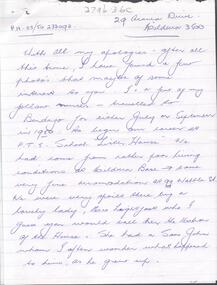 2796.36c
29 Acacia Drive
Kildura 3500
With all my apologies - after all
this time, I have found a few
photos that may be of some
interest to you. I & a few of my
fellow nurses - travelled to
Bendigo for either July or September
in 1950 to begin our career at
P.T.S. School Lister House. We
had come from rather poor living
conditions at Mildura Base - to some
very fine accommodation at 99 Wattle St.
We were very spoiles there by a
lovely lady, Rose Loug
guess you would call her the Matron
of the House. She had a son John
whom I often wonder what happened
to him, as he grew up.